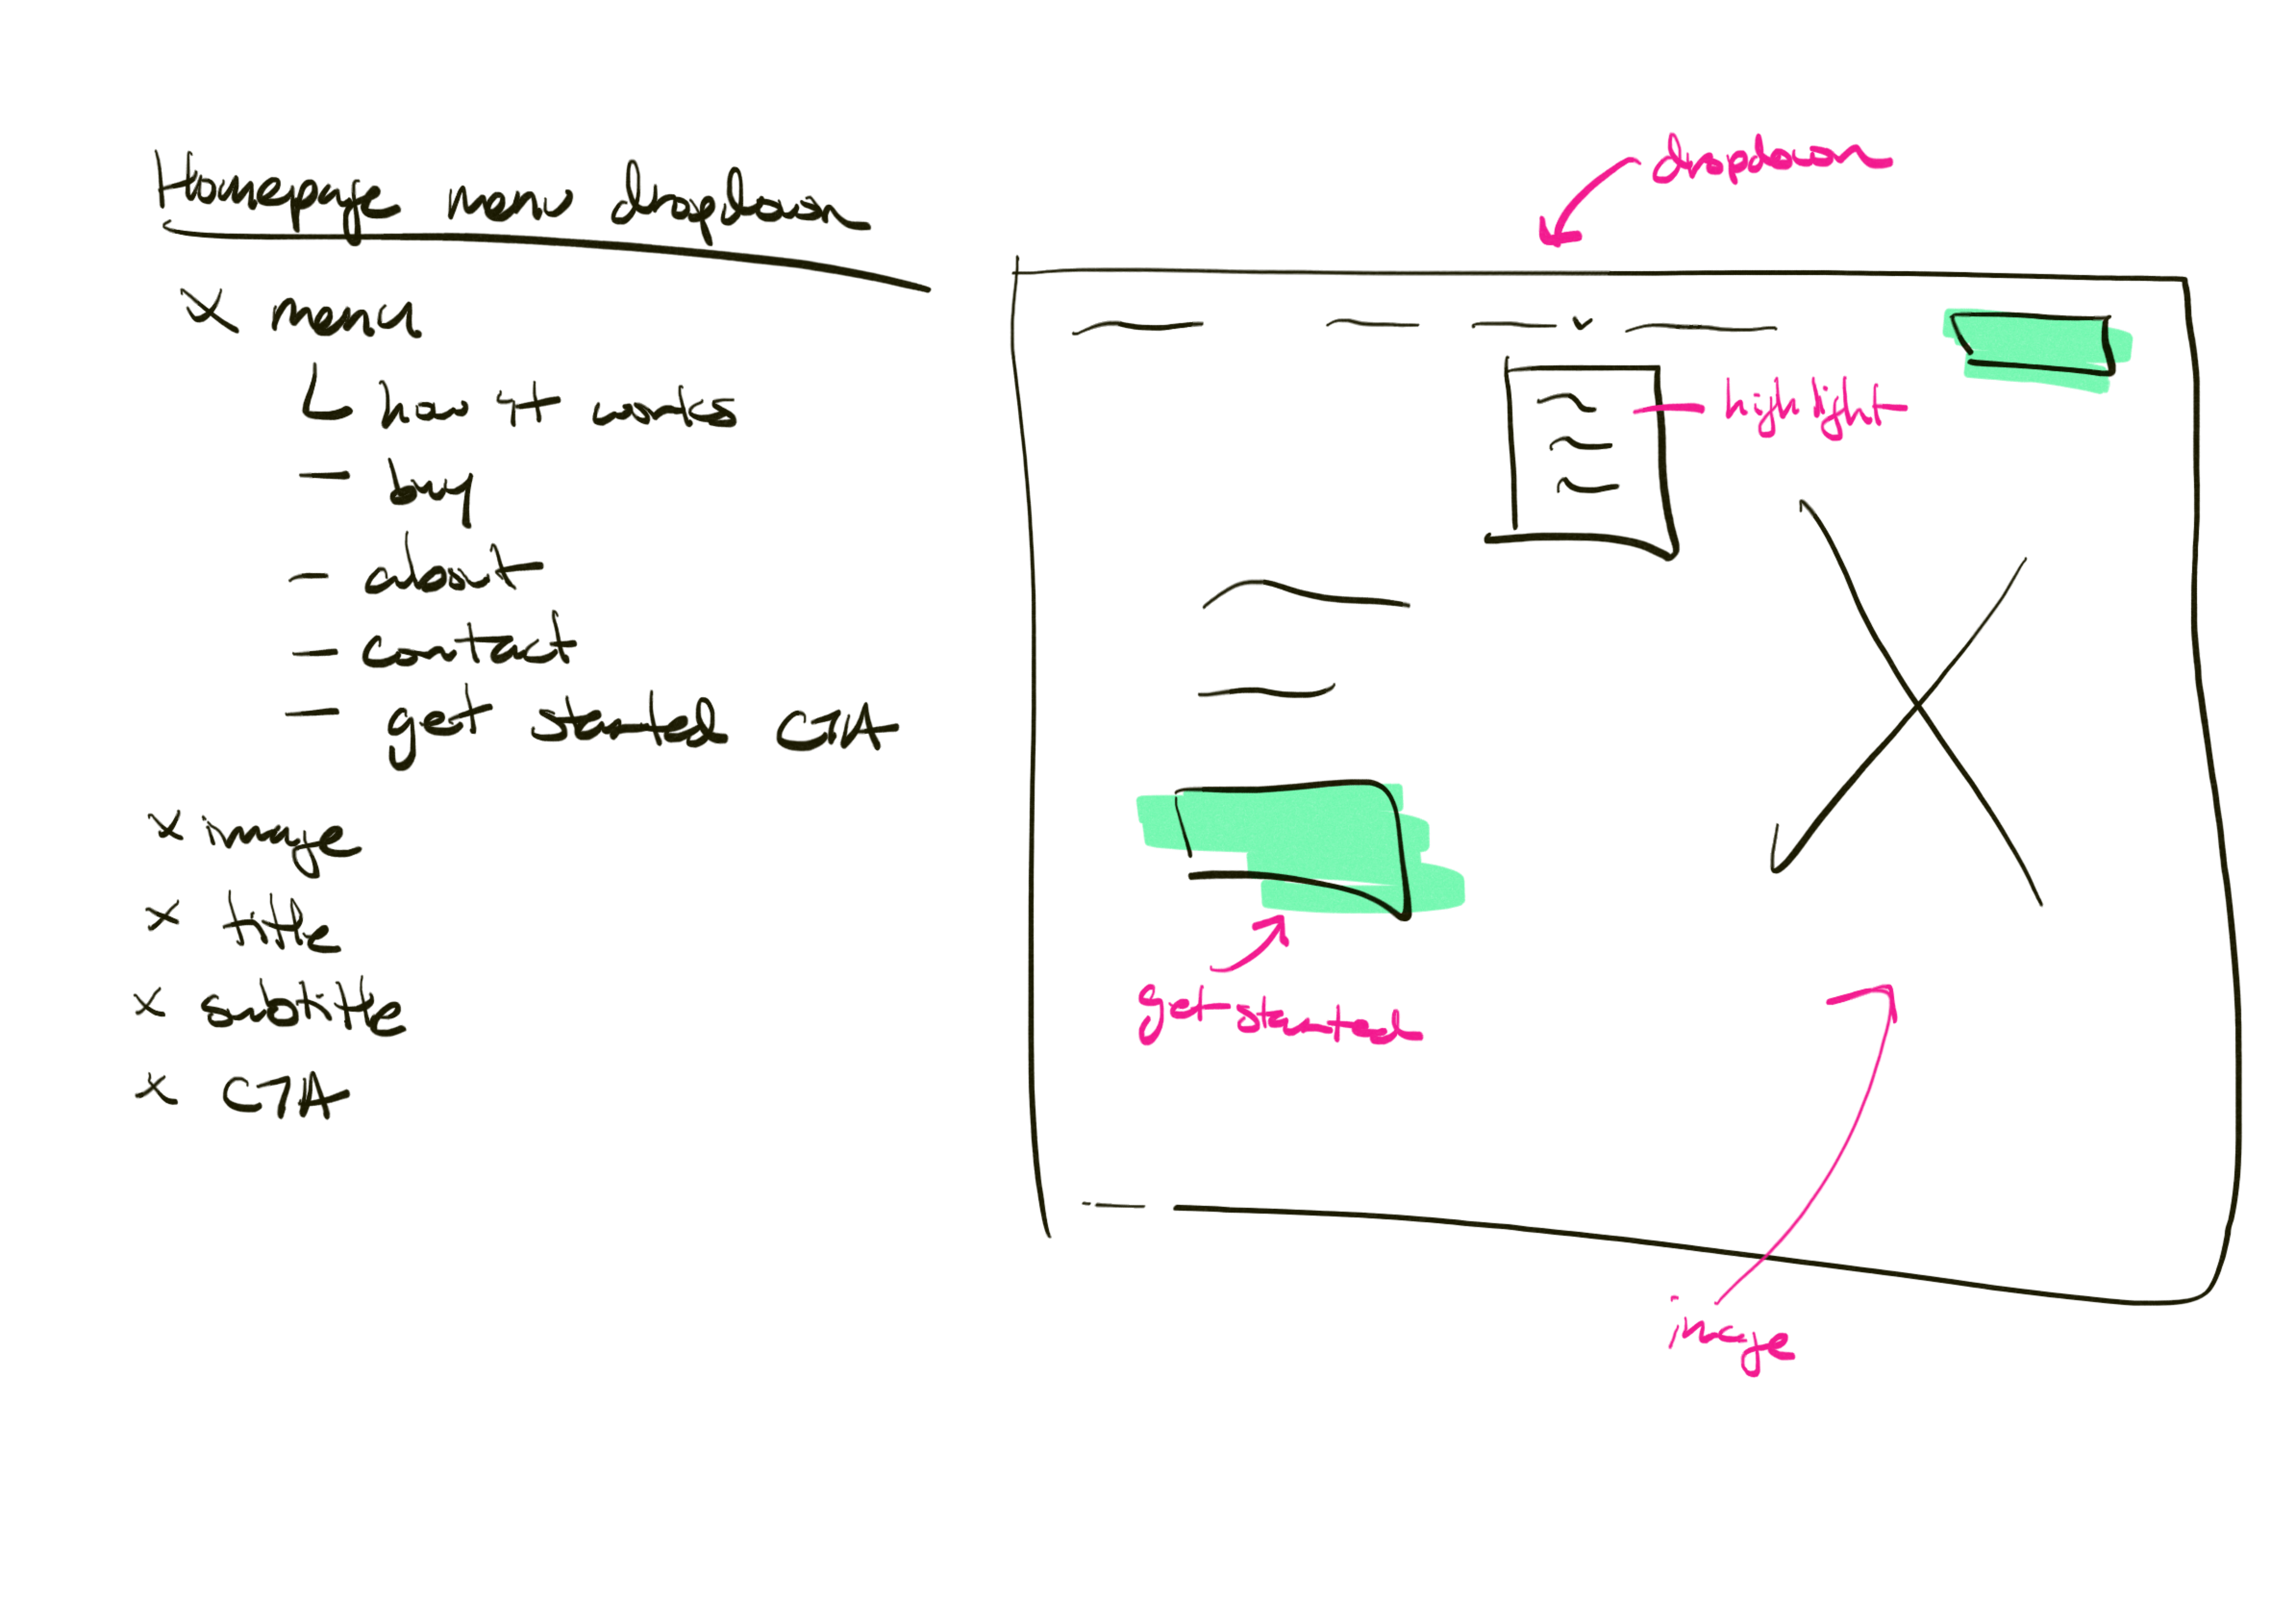 Homepage menu dropdown
x menu
how it works
- buy
- about
- contact
- get started CTA
x image
x title
x subtitle
x CTA
dropdown
highlight
get started
image